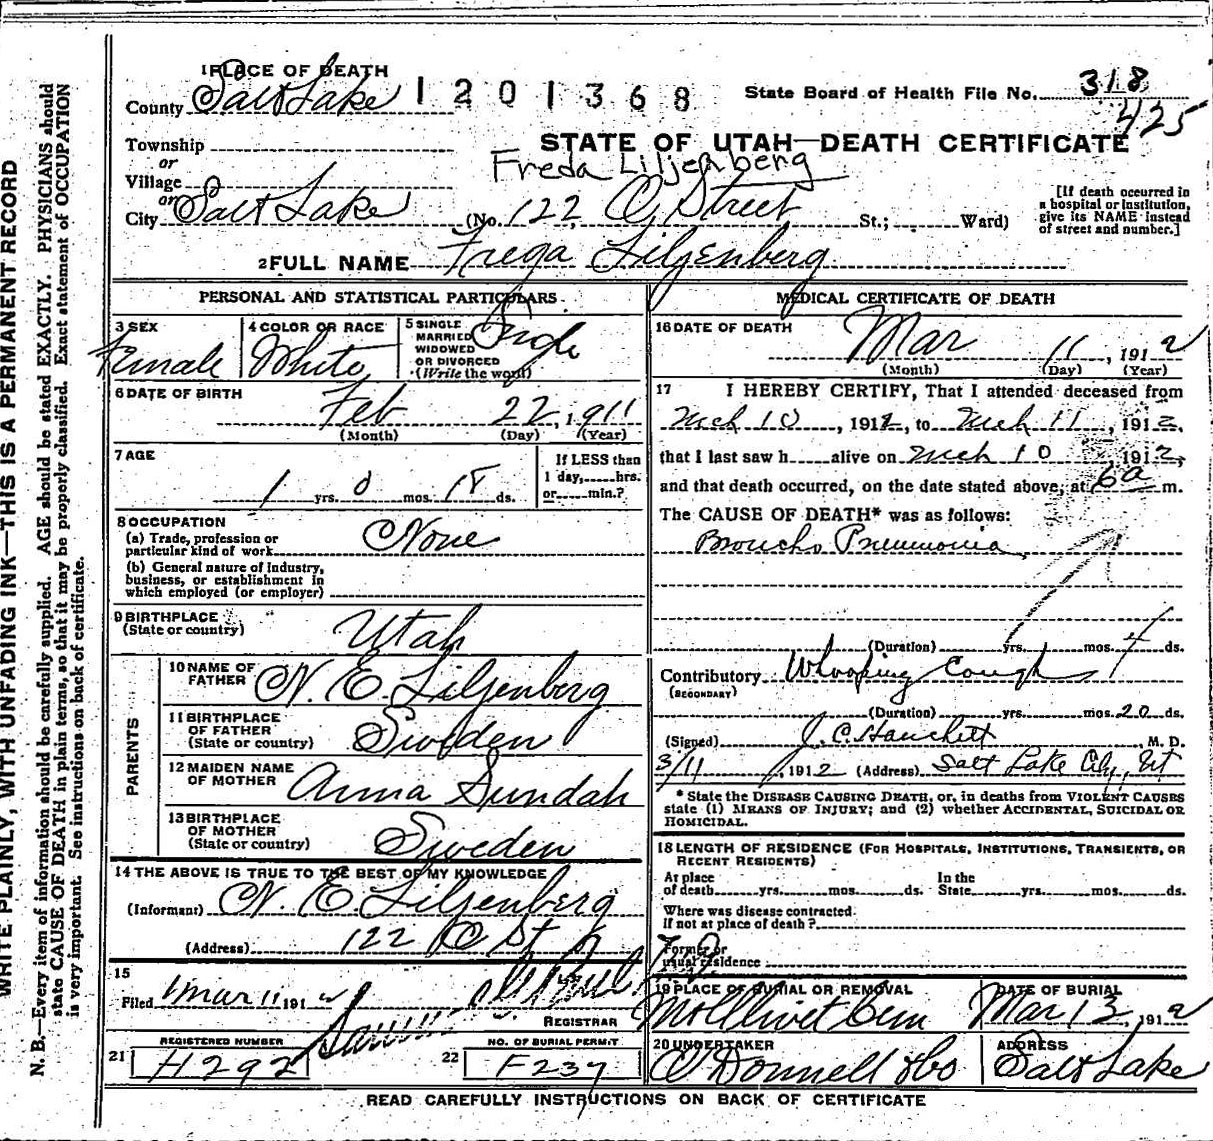 WRITE PLAINLY, WITH UNFADING INK—THIS IS A PERMANENT RECORD
N. B.—Every item of information should be carefully supplied. AGE should be stated EXACTLY. PHYSICIANS should
state CAUSE OF DEATH in plain terms, so that it may be properly classified. Exact statement of OCCUPATION
is very important. See instructions on back of certificate.
1 PLACE OF DEATH
County Salt Lake 1201368 State Board of Health File No. 318
425
Township
STATE OF UTAH—DEATH CERTIFICATE
or
Freda Liljenberg
Village
or
City Salt Lake (No. 122, C Street St.; Ward)
[If death occurred in
a hospital or institution,
give its NAME instead
of street and number.]
2 FULL NAME Freda Liljenberg
PERSONAL AND STATISTICAL PARTICULARS
3 SEX
Female
4 COLOR OR RACE
White
5 SINGLE
MARRIED
WIDOWED
OR DIVORCED
(Write the word)
Single
6 DATE OF BIRTH
Feb 22, 1911
(Month) (Day) (Year)
7 AGE
1 yrs. 0 mos. 18 ds.
If LESS than
1 day, hrs.
or min.?
8 OCCUPATION
(a) Trade, profession or
particular kind of work None
(b) General nature of industry,
business, or establishment in
which employed (or employer)
9 BIRTHPLACE
(State or country) Utah
PARENTS
10 NAME OF
FATHER N. E. Liljenberg
11 BIRTHPLACE
OF FATHER
(State or country) Sweden
12 MAIDEN NAME
OF MOTHER Anna Sundah
13 BIRTHPLACE
OF MOTHER
(State or country) Sweden
14 THE ABOVE IS TRUE TO THE BEST OF MY KNOWLEDGE
(Informant) N. E. Liljenberg
(Address) 122 C St
15
Filed Mar 11 1912
REGISTRAR
REGISTERED NUMBER
21 H292
NO. OF BURIAL PERMIT
22 F237
MEDICAL CERTIFICATE OF DEATH
16 DATE OF DEATH
Mar 11, 1912
(Month) (Day) (Year)
17 I HEREBY CERTIFY, That I attended deceased from
Mch 10, 1912, to Mch 11, 1912,
that I last saw h alive on Mch 10 1912,
and that death occurred, on the date stated above, at 6a m.
The CAUSE OF DEATH* was as follows:
Broncho Pneumonia
(Duration) yrs. mos. 4 ds.
Contributory Whooping Cough
(SECONDARY)
(Duration) yrs. mos. 20 ds.
(Signed) J. C. Hanchett M. D.
3/11, 1912 (Address) Salt Lake City, Ut
* State the DISEASE CAUSING DEATH, or, in deaths from VIOLENT CAUSES
state (1) MEANS OF INJURY; and (2) whether ACCIDENTAL, SUICIDAL OR
HOMICIDAL.
18 LENGTH OF RESIDENCE (FOR HOSPITALS, INSTITUTIONS, TRANSIENTS, OR
RECENT RESIDENTS)
At place
of death yrs. mos. ds.
In the
State yrs. mos. ds.
Where was disease contracted
If not at place of death?
Former or
usual residence
19 PLACE OF BURIAL OR REMOVAL
DATE OF BURIAL
Mt Olivet Cem
Mar 13, 1912
20 UNDERTAKER
ADDRESS
O'Donnell & Co
Salt Lake
READ CAREFULLY INSTRUCTIONS ON BACK OF CERTIFICATE